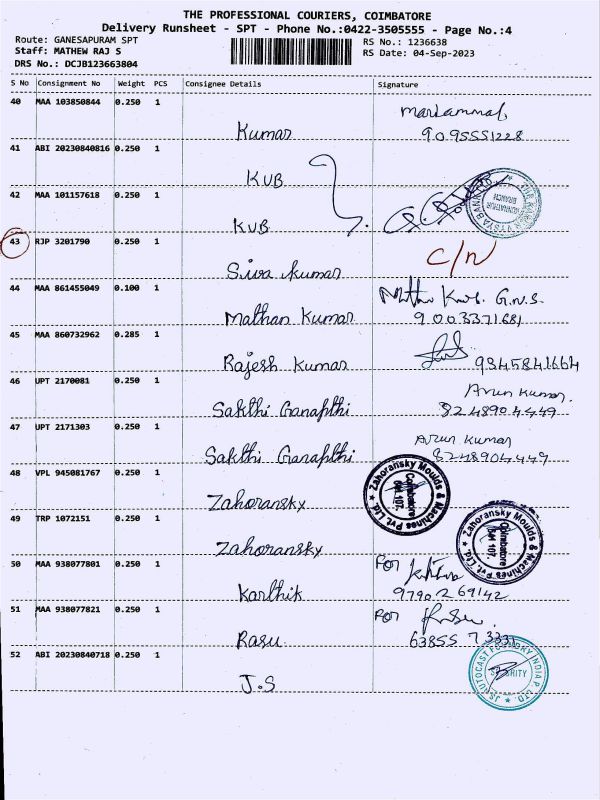 THE PROFESSIONAL COURIERS, COIMBATORE
Delivery Runsheet - SPT - Phone No.:0422-3505555 - Page No.:4
Route: GANESAPURAM SPT
Staff: MATHEW RAJ S
DRS No.: DCJB123663804
RS No.: 1236638
RS Date: 04-Sep-2023
S No Consignment No Weight PCS Consignee Details Signature
40 MAA 103850844 0.250 1 Kumar Mariammal
9095551228
41 ABI 20230840816 0.250 1 KVB
42 MAA 101157618 0.250 1 KVB
THE KARUR VYSYA BANK LTD.
BRANCH
43 RJP 3201790 0.250 1 Siva kumar C/N
44 MAA 861455049 0.100 1 Mathan Kumar G.N.S.
9003371681
45 MAA 860732962 0.285 1 Rajesh Kumar 9345841664
46 UPT 2170081 0.250 1 Sakthi Ganapthi Arun Kumar.
8248904449
47 UPT 2171303 0.250 1 Sakthi Ganapthi Arun Kumar
8248904449
48 VPL 945081767 0.250 1 Zahoransky
Zahoransky Moulds & Machines Pvt. Ltd. ★
Coimbatore
641 107.
49 TRP 1072151 0.250 1 Zahoransky
Zahoransky Moulds & Machines Pvt. Ltd. ★
Coimbatore
641 107.
50 MAA 938077801 0.250 1 Karthik For
9790269142
51 MAA 938077821 0.250 1 Rasu For
63855 73331
52 ABI 20230840718 0.250 1 J.S
JS AUTOCAST FOUNDRY INDIA P LTD.
SECURITY